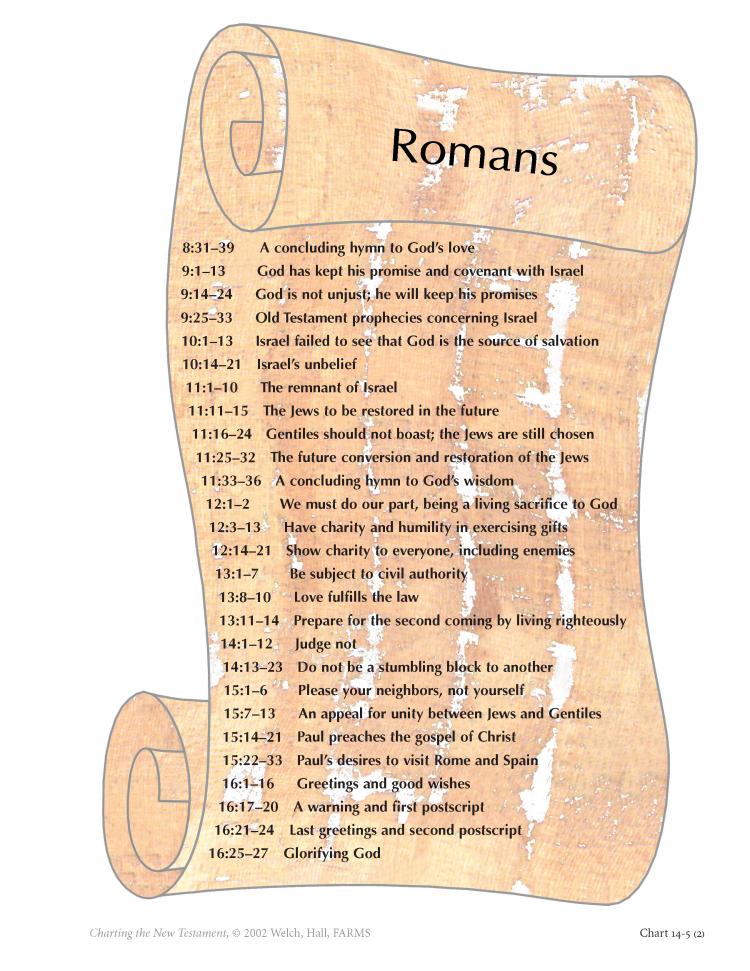 Romans
8:31–39 A concluding hymn to God's love
9:1–13 God has kept his promise and covenant with Israel
9:14–24 God is not unjust; he will keep his promises
9:25–33 Old Testament prophecies concerning Israel
10:1–13 Israel failed to see that God is the source of salvation
10:14–21 Israel's unbelief
11:1–10 The remnant of Israel
11:11–15 The Jews to be restored in the future
11:16–24 Gentiles should not boast; the Jews are still chosen
11:25–32 The future conversion and restoration of the Jews
11:33–36 A concluding hymn to God's wisdom
12:1–2 We must do our part, being a living sacrifice to God
12:3–13 Have charity and humility in exercising gifts
12:14–21 Show charity to everyone, including enemies
13:1–7 Be subject to civil authority
13:8–10 Love fulfills the law
13:11–14 Prepare for the second coming by living righteously
14:1–12 Judge not
14:13–23 Do not be a stumbling block to another
15:1–6 Please your neighbors, not yourself
15:7–13 An appeal for unity between Jews and Gentiles
15:14–21 Paul preaches the gospel of Christ
15:22–33 Paul's desires to visit Rome and Spain
16:1–16 Greetings and good wishes
16:17–20 A warning and first postscript
16:21–24 Last greetings and second postscript
16:25–27 Glorifying God
Charting the New Testament, © 2002 Welch, Hall, FARMS Chart 14-5 (2)